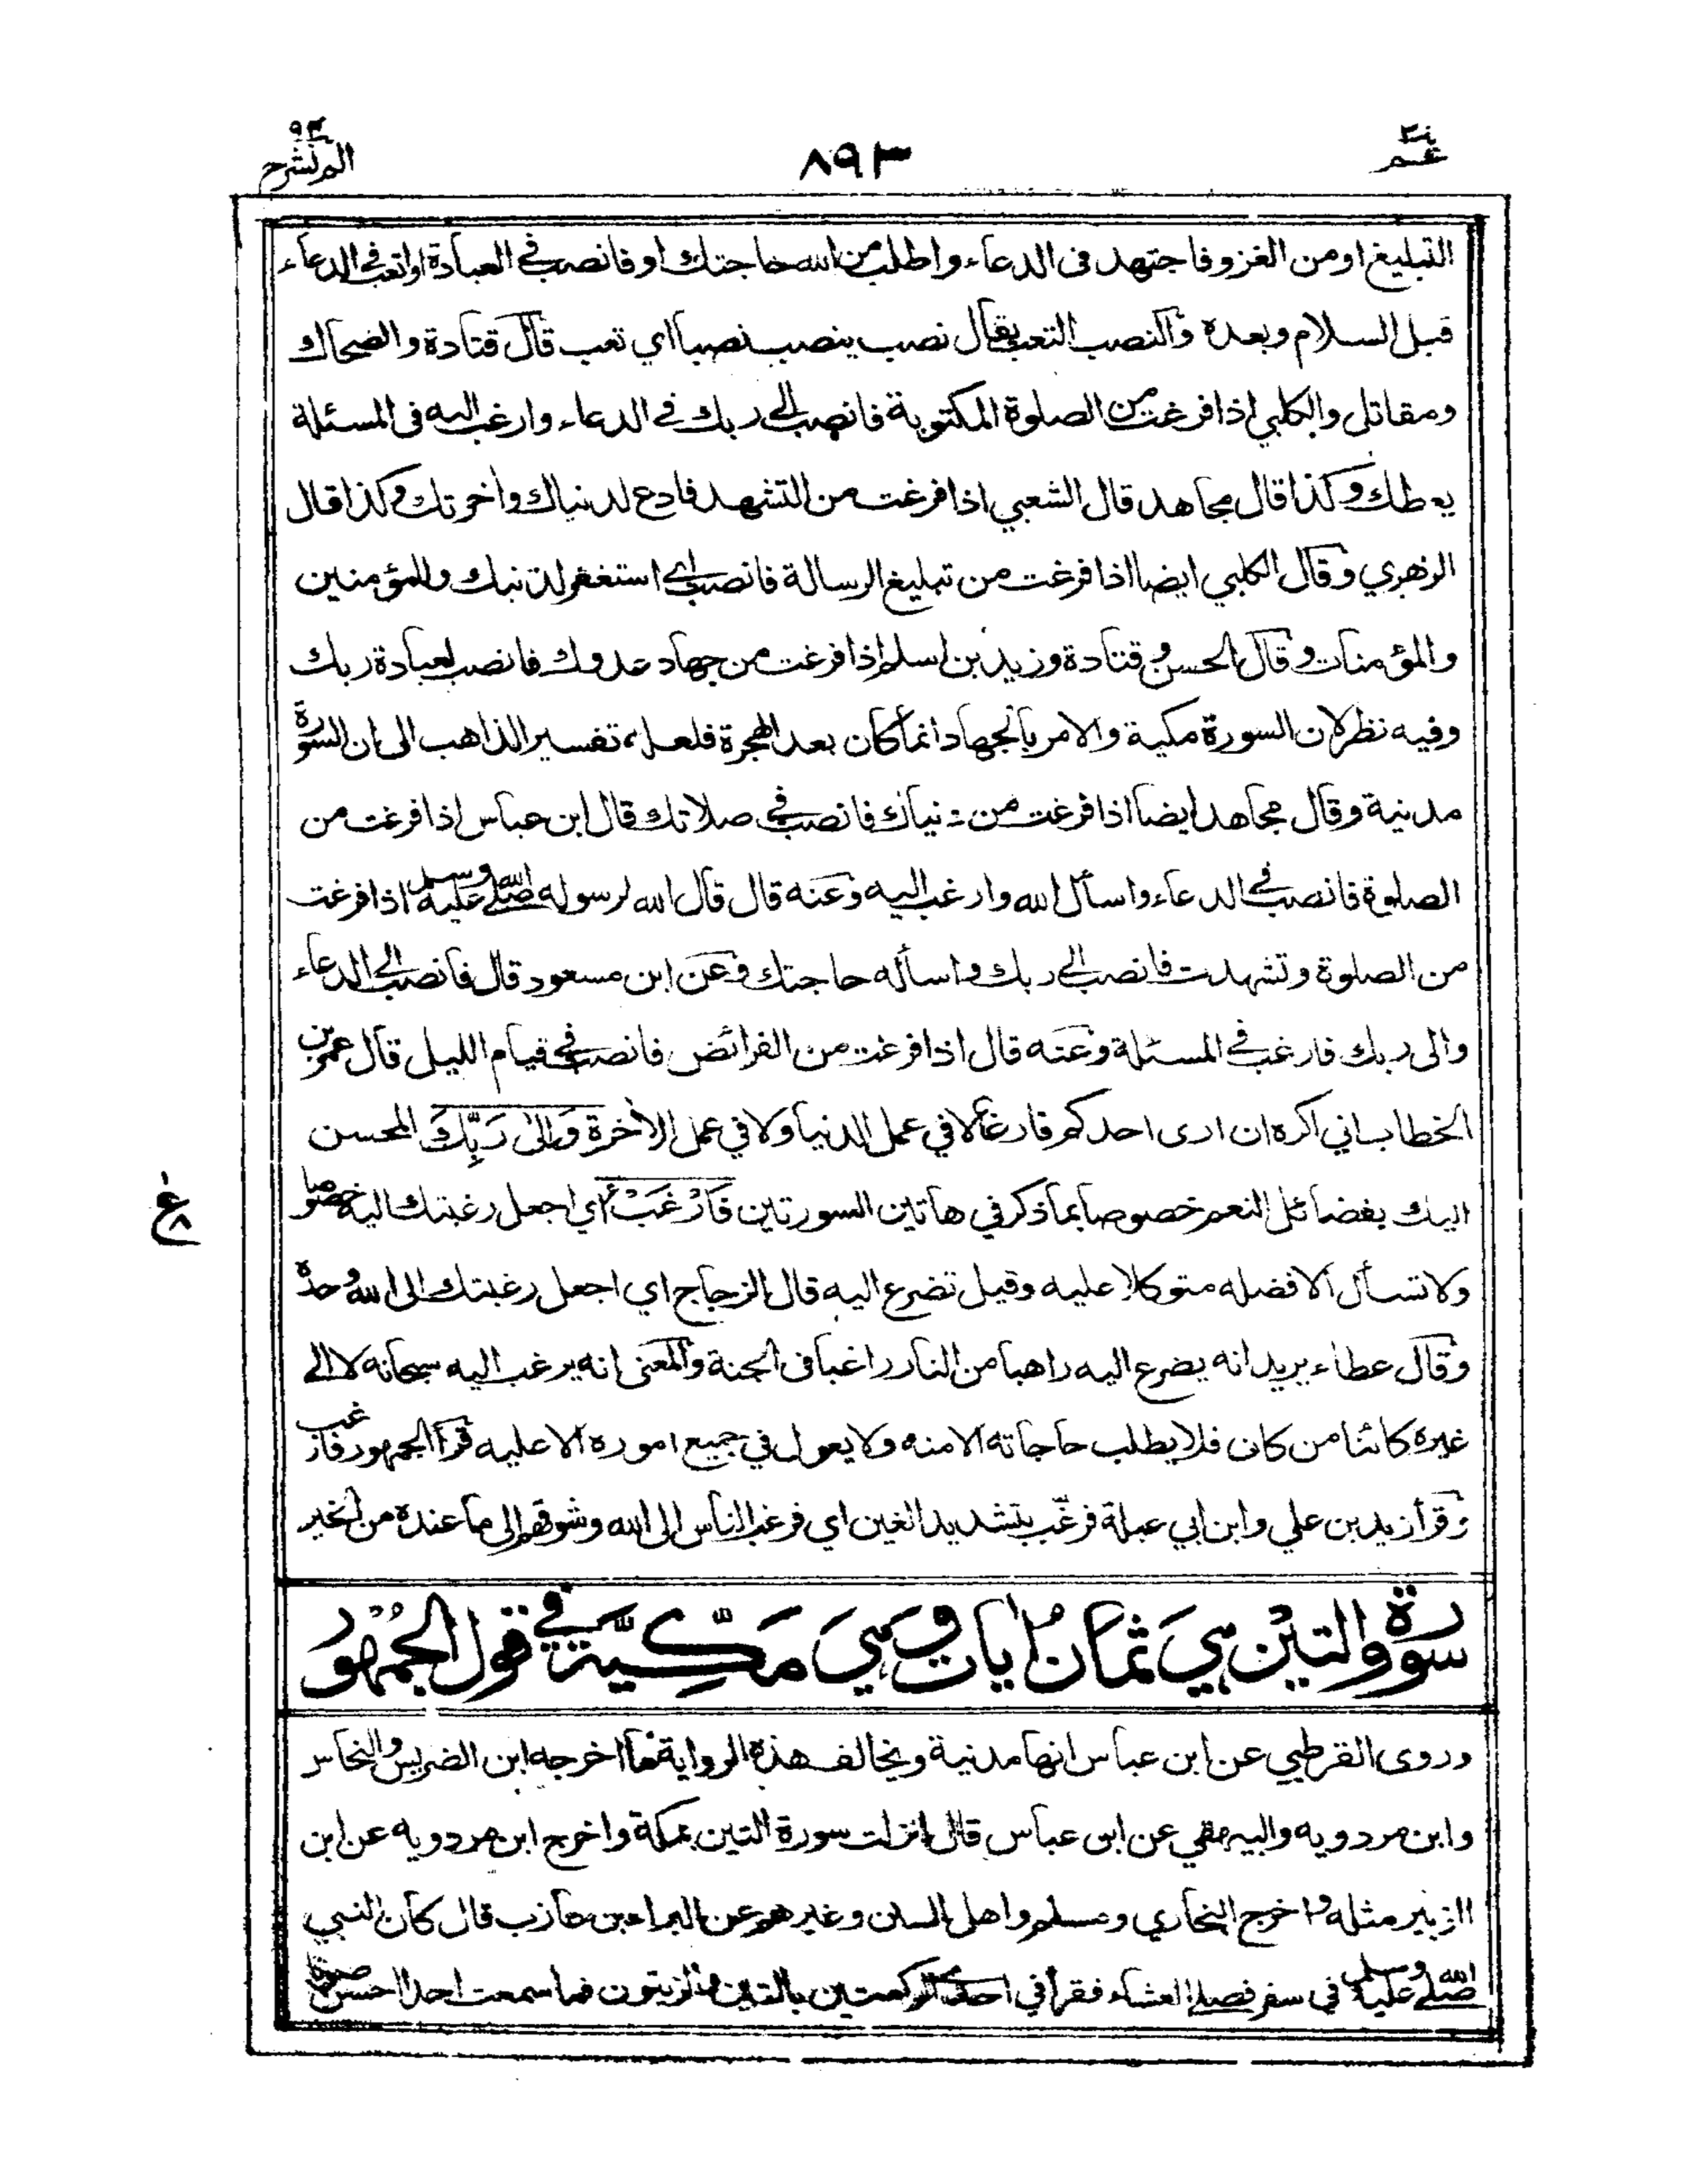 عم ٣٠ ٨٩٣ الم نشرح ٩٤
التبليغ او من الغزو فاجتهد فى الدعاء واطلب من الله حاجتك او فانصب في العبادة او اتعب في الدعاء
قبل السلام وبعده والنصب التعب يقال نصب ينصب نصبا اي تعب قال قتادة والضحاك
ومقاتل والكلبي اذا فرغت من الصلوة المكتوبة فانصب الى ربك في الدعاء وارغب اليه فى المسئلة
يعطك وكذا قال مجاهد قال الشعبي اذا فرغت من التشهد فادع لدنياك واخرتك وكذا قال
الزهري وقال الكلبي ايضا اذا فرغت من تبليغ الرسالة فانصب اي استغفر لذنبك وللمؤمنين
والمؤمنات وقال الحسن وقتادة وزيد بن اسلم اذا فرغت من جهاد عدوك فانصب لعبادة ربك
وفيه نظر لان السورة مكية والامر بالجهاد انما كان بعد الهجرة فلعله تفسير الذاهب الى ان السورة
مدنية وقال مجاهد ايضا اذا فرغت من دنياك فانصب في صلاتك قال ابن عباس اذا فرغت من
الصلوة فانصب في الدعاء واسأل الله وارغب اليه وعنه قال قال الله لرسوله صلى الله عليه وسلم اذا فرغت
من الصلوة وتشهدت فانصب الى ربك واسأله حاجتك وعن ابن مسعود قال فانصب الى الدعاء
والى ربك فارغب في المسئلة وعنه قال اذا فرغت من الفرائض فانصب في قيام الليل قال عمر بن
الخطاب اني اكره ان ارى احدكم فارغا لا في عمل الدنيا ولا في عمل الاخرة وَاِلىٰ رَبِّكَ المحسن
اليك بفضائل النعم خصوصا بما ذكر في هاتين السورتين فَارْغَبْ اي اجعل رغبتك اليه خصوصا
ولا تسأل الا فضله متوكلا عليه وقيل تضرع اليه قال الزجاج اي اجعل رغبتك الى الله وحده
وقال عطاء يريد انه يضرع اليه راهبا من النار راغبا فى الجنة والمعنى انه يرغب اليه سبحانه لا الى
غيره كائنا من كان فلا يطلب حاجاته الا منه ولا يعول في جميع اموره الا عليه قرأ الجمهور فارغب
وقرأ زيد بن علي وابن ابي عبلة فرغّب بتشديد الغين اي فرغب الناس الى الله وشوقهم الى ما عنده من الخير
ع ٨
سورة والتين هي ثمان ايات وهي مكية في قول الجمهور
وروى القرطبي عن ابن عباس انها مدنية ويخالف هذه الرواية ما اخرجه ابن الضريس والنحاس
وابن مردويه والبيهقي عن ابن عباس قال انزلت سورة التين بمكة واخرج ابن مردويه عن ابن
الزبير مثله واخرج البخاري ومسلم واهل السنن وغيرهم عن البراء بن عازب قال كان النبي
صلى الله عليه وسلم في سفر فصلى العشاء فقرأ في احدى الركعتين بالتين والزيتون فما سمعت احدا احسن صوتا